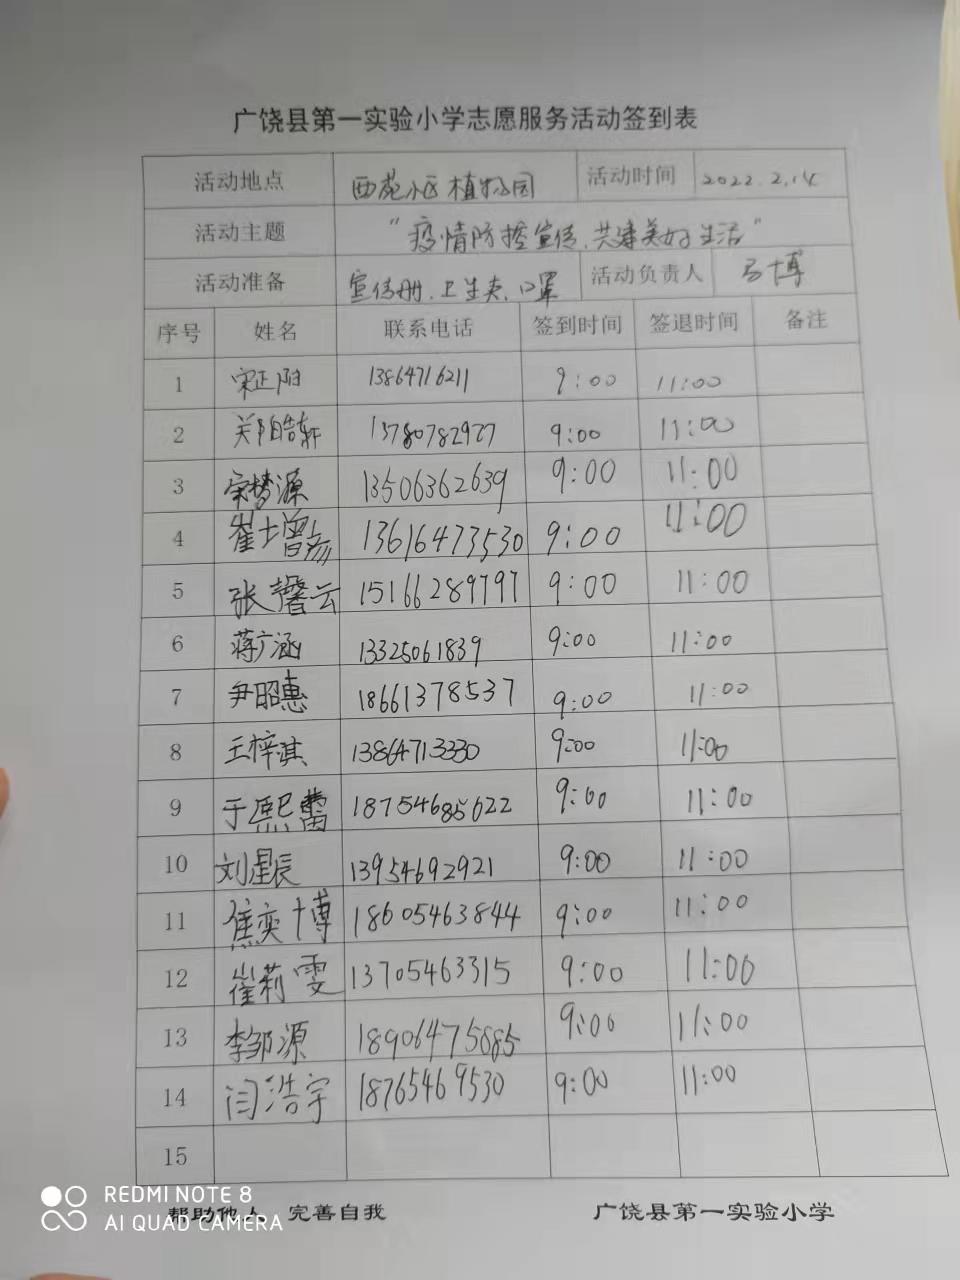 广饶县第一实验小学志愿服务活动签到表
活动地点 西苑小区 植物园 活动时间 2022.2.14
活动主题 "疫情防控宣传,共建美好生活"
活动准备 宣传册、卫生夹、口罩 活动负责人 马博
序号 姓名 联系电话 签到时间 签退时间 备注
1 宋正阳 13864716211 9:00 11:00
2 郑皓轩 13780782927 9:00 11:00
3 宋梦源 13506362639 9:00 11:00
4 崔士曾彦 13616473530 9:00 11:00
5 张馨云 15166289797 9:00 11:00
6 蒋广涵 13325061839 9:00 11:00
7 尹昭惠 18661378537 9:00 11:00
8 王梓淇 13864713330 9:00 11:00
9 于熙蕾 18754685622 9:00 11:00
10 刘星辰 13954692921 9:00 11:00
11 焦奕博 18605463844 9:00 11:00
12 崔莉雯 13705463315 9:00 11:00
13 李邹源 18906475885 9:00 11:00
14 闫浩宇 18765469530 9:00 11:00
15
帮助他人 完善自我 广饶县第一实验小学
REDMI NOTE 8
AI QUAD CAMERA